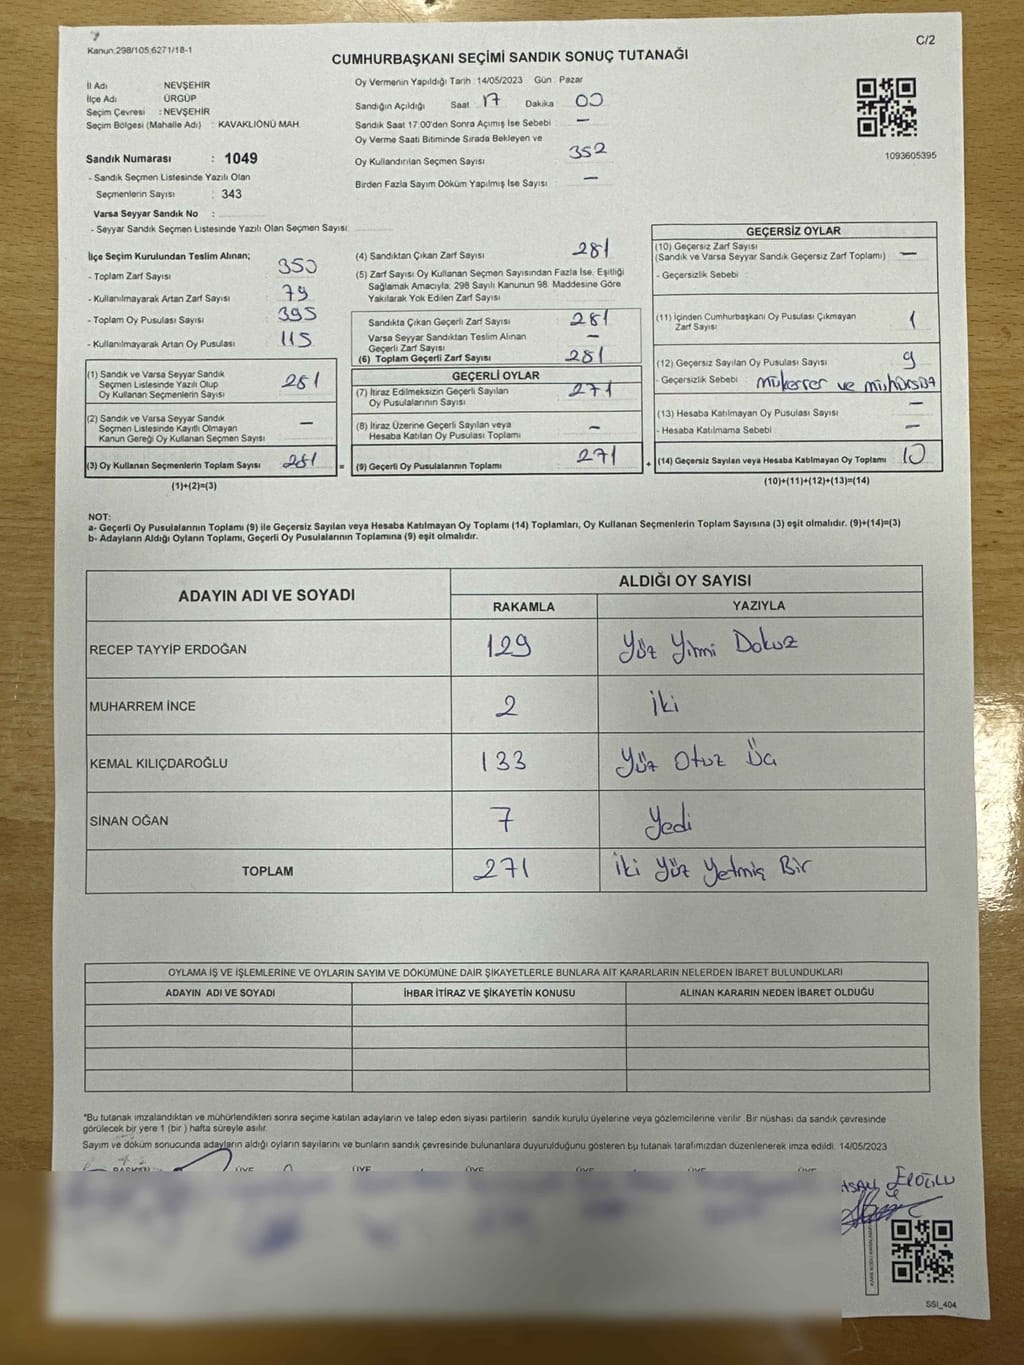 Kanun:298/105;6271/18-1
C/2
CUMHURBAŞKANI SEÇİMİ SANDIK SONUÇ TUTANAĞI
İl Adı NEVŞEHİR
İlçe Adı ÜRGÜP
Seçim Çevresi : NEVŞEHİR
Seçim Bölgesi (Mahalle Adı) : KAVAKLIÖNÜ MAH.
Sandık Numarası : 1049
- Sandık Seçmen Listesinde Yazılı Olan
Seçmenlerin Sayısı : 343
Varsa Seyyar Sandık No :
- Seyyar Sandık Seçmen Listesinde Yazılı Olan Seçmen Sayısı
Oy Vermenin Yapıldığı Tarih : 14/05/2023 Gün : Pazar
Sandığın Açıldığı Saat 17 Dakika 00
Sandık Saat 17:00'den Sonra Açımış İse Sebebi : —
Oy Verme Saati Bitiminde Sırada Bekleyen ve
Oy Kullandırılan Seçmen Sayısı 352
Birden Fazla Sayım Döküm Yapılmış İse Sayısı —
1093605395
İlçe Seçim Kurulundan Teslim Alınan;
- Toplam Zarf Sayısı 350
- Kullanılmayarak Artan Zarf Sayısı : 79
- Toplam Oy Pusulası Sayısı : 395
- Kullanılmayarak Artan Oy Pusulası : 115
(1) Sandık ve Varsa Seyyar Sandık
Seçmen Listesinde Yazılı Olup
Oy Kullanan Seçmenlerin Sayısı 281
(2) Sandık ve Varsa Seyyar Sandık
Seçmen Listesinde Kayıtlı Olmayan
Kanun Gereği Oy Kullanan Seçmen Sayısı —
(3) Oy Kullanan Seçmenlerin Toplam Sayısı 281 =
(1)+(2)=(3)
(4) Sandıktan Çıkan Zarf Sayısı 281
(5) Zarf Sayısı Oy Kullanan Seçmen Sayısından Fazla İse, Eşitliği
Sağlamak Amacıyla, 298 Sayılı Kanunun 98. Maddesine Göre
Yakılarak Yok Edilen Zarf Sayısı
Sandıkta Çıkan Geçerli Zarf Sayısı 281
Varsa Seyyar Sandıktan Teslim Alınan
Geçerli Zarf Sayısı —
(6) Toplam Geçerli Zarf Sayısı 281
GEÇERLİ OYLAR
(7) İtiraz Edilmeksizin Geçerli Sayılan
Oy Pusulalarının Sayısı 271
(8) İtiraz Üzerine Geçerli Sayılan veya
Hesaba Katılan Oy Pusulası Toplamı —
(9) Geçerli Oy Pusulalarının Toplamı 271 +
GEÇERSİZ OYLAR
(10) Geçersiz Zarf Sayısı
(Sandık ve Varsa Seyyar Sandık Geçersiz Zarf Toplamı) —
- Geçersizlik Sebebi
(11) İçinden Cumhurbaşkanı Oy Pusulası Çıkmayan
Zarf Sayısı 1
(12) Geçersiz Sayılan Oy Pusulası Sayısı 9
- Geçersizlik Sebebi mükerrer ve mühürsüz
(13) Hesaba Katılmayan Oy Pusulası Sayısı —
- Hesaba Katılmama Sebebi : —
(14) Geçersiz Sayılan veya Hesaba Katılmayan Oy Toplamı 10
(10)+(11)+(12)+(13)=(14)
NOT:
a- Geçerli Oy Pusulalarının Toplamı (9) ile Geçersiz Sayılan veya Hesaba Katılmayan Oy Toplamı (14) Toplamları, Oy Kullanan Seçmenlerin Toplam Sayısına (3) eşit olmalıdır. (9)+(14)=(3)
b- Adayların Aldığı Oyların Toplamı, Geçerli Oy Pusulalarının Toplamına (9) eşit olmalıdır.
ADAYIN ADI VE SOYADI ALDIĞI OY SAYISI
RAKAMLA YAZIYLA
RECEP TAYYİP ERDOĞAN 129 Yüz Yirmi Dokuz
MUHARREM İNCE 2 İki
KEMAL KILIÇDAROĞLU 133 Yüz Otuz Üç
SİNAN OĞAN 7 Yedi
TOPLAM 271 İki Yüz Yetmiş Bir
OYLAMA İŞ VE İŞLEMLERİNE VE OYLARIN SAYIM VE DÖKÜMÜNE DAİR ŞİKAYETLERLE BUNLARA AİT KARARLARIN NELERDEN İBARET BULUNDUKLARI
ADAYIN ADI VE SOYADI İHBAR İTİRAZ VE ŞİKAYETİN KONUSU ALINAN KARARIN NEDEN İBARET OLDUĞU
*Bu tutanak imzalandıktan ve mühürlendikten sonra seçime katılan adayların ve talep eden siyasi partilerin sandık kurulu üyelerine veya gözlemcilerine verilir. Bir nüshası da sandık çevresinde
görülecek bir yere 1 (bir) hafta süreyle asılır.
Sayım ve döküm sonucunda adayların aldığı oyların sayılarını ve bunların sandık çevresinde bulunanlara duyurulduğunu gösteren bu tutanak tarafımızdan düzenlenerek imza edildi. 14/05/2023
BAŞKAN ÜYE ÜYE ÜYE ÜYE ÜYE ÜYE
SSI_404